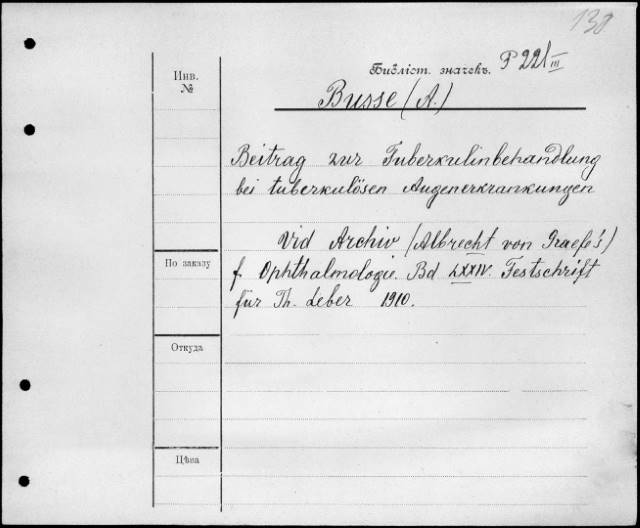 130
Библіот. значекъ. P 221 III
Инв.
№
Busse (A.)
Beitrag zur Tuberkulinbehandlung
bei tuberkulösen Augenerkrankungen
Vid Archiv (Albrecht von Graefe's)
По заказу
f. Ophthalmologie. Bd LXXIV. Festschrift
für Th. Leber 1910.
Откуда
Цѣна